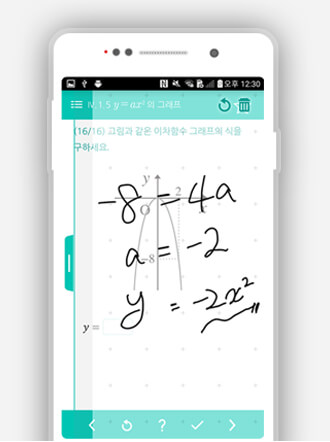 오후 12:30
IV. 1.5 y=ax² 의 그래프
(16/16) 그림과 같은 이차함수 그래프의 식을
구하세요.
y
2
O
x
-8
-8 = 4a
a = -2
y = -2x²
y =
?